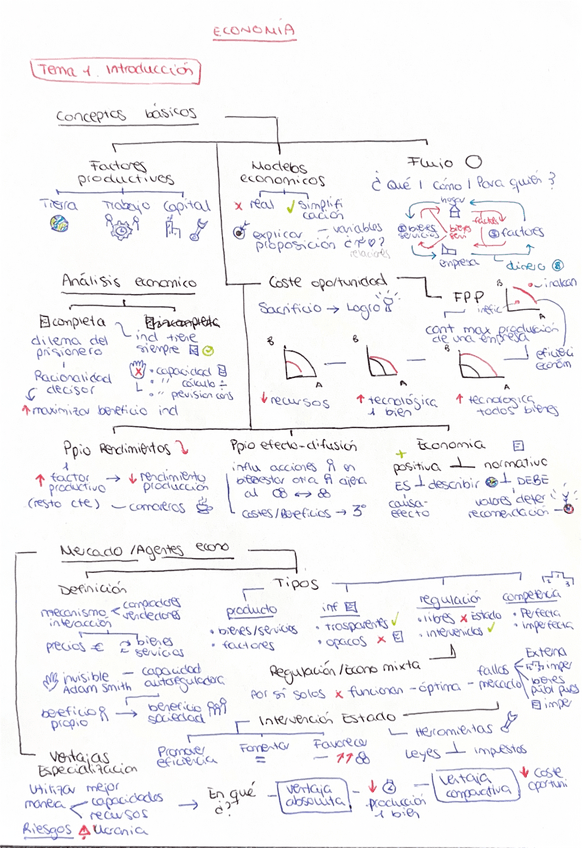 ECONOMÍA
Tema 1. Introducción
Conceptos básicos
Factores productivos
Tierra Trabajo Capital
Modelos economicos
x real ✓ Simplificación
explicar — variables
proposición
relaciones
Flujo
¿Qué / cómo / Para quién?
hogar
bienes servicios
factores
bienes serv
factores
empresa
dinero
Análisis economico
completa
incompleta
dilema del prisionero
Racionalidad
decisor
↑ maximizar beneficio ind
ind tiene siempre
• capacidad
• " cálculo
• " prevision cons
Coste oportunidad
Sacrificio → Logro
FPP
inefic
inalcan
B
A
cant max producción
de una empresa
eficienc
económ
B
A
B
A
B
↓ recursos
↑ tecnológica
1 bien
↑ tecnologica
todos bienes
Ppio Rendimientos ↓
↑ factor productivo → ↓ rendimiento producción
(resto cte) — camareros
Ppio efecto-difusión
influ acciones en
bienestar otra ajena
al
costes/Beneficios → 3º
Economia
+
positiva ⊥ normativo
ES ⊥ describir ⊥ DEBE
causa-
efecto
valores deter
recomendación
Mercado /Agentes econo
Definición
mecanismo interacción < compradores vendedores
precios € bienes servicios
invisible
Adam Smith
— capacidad autoreguladora
beneficio propio → beneficio sociedad
Tipos
producto
• bienes/servicios
• factores
inf
• trasparentes ✓
• opacos x
regulación
• libres x Estado
• intervenidos ✓
competencia
• Perfecta
• imperfecta
Regulación/Econo mixta
Por si solos x funcionan — óptima — fallos mercado
Externa
imper
bienes
públ
imper
Intervención Estado
Promover eficiencia
Fomentar
=
Favorecer
— ↑↑
Herramientas
Leyes ⊥ impuestos
Ventajas
Especialización
Utilizar mejor
manera < capacidades recursos
Riesgos Ucrania
→ En qué ¿?
ventaja absoluta
↓
producción
1 bien
ventaja comparativa
↓ Coste
oportuni